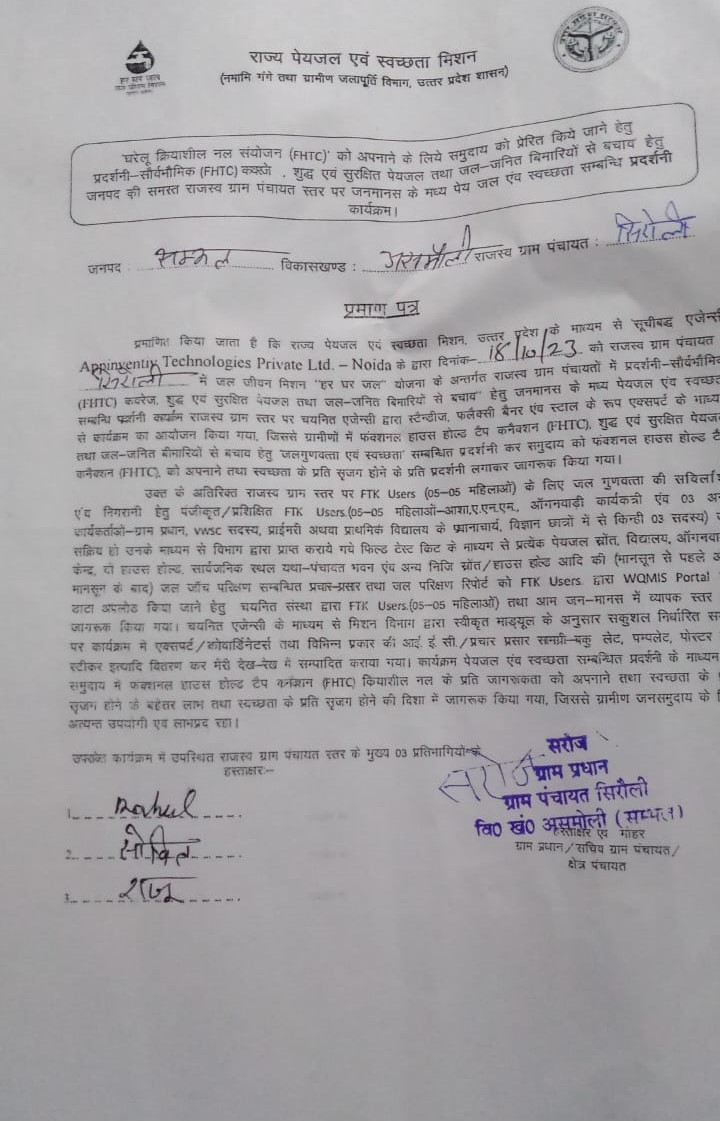 हर घर जल
राज्य पेयजल एवं स्वच्छता मिशन
(नमामि गंगे तथा ग्रामीण जलापूर्ति विभाग, उत्तर प्रदेश शासन)
'घरेलू क्रियाशील नल संयोजन (FHTC)' को अपनाने के लिये समुदाय को प्रेरित किये जाने हेतु
प्रदर्शनी-सौर्यभौमिक (FHTC) कवरेज , शुद्ध एवं सुरक्षित पेयजल तथा जल-जनित बिमारियों से बचाव हेतु
जनपद की समस्त राजस्व ग्राम पंचायत स्तर पर जनमानस के मध्य पेय जल एंव स्वच्छता सम्बन्धि प्रदर्शनी
कार्यक्रम।
जनपद सम्भल विकासखण्ड : असमौली राजस्व ग्राम पंचायत : सिरौली
प्रमाण पत्र
प्रमाणित किया जाता है कि राज्य पेयजल एवं स्वच्छता मिशन, उत्तर प्रदेश के माध्यम से सूचीबद्ध एजेन्सी
Appinventiv Technologies Private Ltd. – Noida के द्वारा दिनांक- 18/10/23 को राजस्व ग्राम पंचायत
सिरौली में जल जीवन मिशन "हर घर जल" योजना के अन्तर्गत राजस्व ग्राम पंचायतों में प्रदर्शनी-सौर्यभौमिक
(FHTC) कवरेज, शुद्ध एवं सुरक्षित पेयजल तथा जल-जनित बिमारियों से बचाव" हेतु जनमानस के मध्य पेयजल एंव स्वच्छता
सम्बन्धि प्रदर्शनी कार्यक्रम राजस्व ग्राम स्तर पर चयनित एजेन्सी द्वारा स्टैन्डीज, फलैक्सी बैनर एंव स्टाल के रूप एक्सपर्ट के माध्य
से कार्यक्रम का आयोजन किया गया, जिससे ग्रामीणों में फंक्शनल हाउस होल्ड टैप कनैक्शन (FHTC), शुद्ध एवं सुरक्षित पेयजल
तथा जल-जनित बीमारियों से बचाव हेतु 'जलगुणवत्ता एवं स्वच्छता' सम्बन्धित प्रदर्शनी कर समुदाय को फंक्शनल हाउस होल्ड टै
कनैक्शन (FHTC), को अपनाने तथा स्वच्छता के प्रति सृजग होने के प्रति प्रदर्शनी लगाकर जागरूक किया गया।
उक्त के अतिरिक्त राजस्व ग्राम स्तर पर FTK Users (05-05 महिलाओं) के लिए जल गुणवत्ता की सर्विलां
एंव निगरानी हेतु पंजीकृत/प्रशिक्षित FTK Users.(05-05 महिलाओं-आशा,ए.एन.एम., ऑगनवाड़ी कार्यकत्री एंव 03 अन
कार्यकर्ताओं-ग्राम प्रधान, VWSC सदस्य, प्राईमरी अथवा प्राथमिक विद्यालय के प्रधानाचार्य, विज्ञान छात्रों में से किन्ही 03 सदस्य)
सक्रिय हो उनके माध्यम से विभाग द्वारा प्राप्त कराये गये फिल्ड टेस्ट किट के माध्यम से प्रत्येक पेयजल स्रोत, विद्यालय, ऑगनवा
केन्द्र, हाउस होल्ड, सार्वजनिक स्थल यथा-पंचायत भवन एंव अन्य निजि स्रोत/हाउस होल्ड आदि की (मानसून से पहले
मानसून के बाद) जल जाँच परिक्षण सम्बन्धित प्रचार-प्रसार तथा जल परिक्षण रिपोर्ट को FTK Users. द्वारा WQMIS Portal
डाटा अपलोड किया जाने हेतु चयनित संस्था द्वारा FTK Users.(05-05 महिलाओं) तथा आम जन-मानस में व्यापक स्तर
जागरूक किया गया। चयनित एजेन्सी के माध्यम से मिशन विभाग द्वारा स्वीकृत माड्यूल के अनुसार सकुशल निर्धारित
पर कार्यक्रम में एक्सपर्ट/कोवार्डिनेटर्स तथा विभिन्न प्रकार की आई. ई सी./प्रचार प्रसार सामग्री-बुकलेट, पम्पलेट, पोस्टर
स्टीकर इत्यादि वितरण कर मेरी देख-रेख में सम्पादित कराया गया। कार्यक्रम पेयजल एंव स्वच्छता सम्बन्धित प्रदर्शनी के माध्यम
समुदाय में फंक्शनल हाउस होल्ड टैप कनैक्शन (FHTC) कियाशील नल के प्रति जागरूकता को अपनाने तथा स्वच्छता के
सृजग होने के बहेतर लाभ तथा स्वच्छता के प्रति सृजग होने की दिशा में जागरूक किया गया, जिससे ग्रामीण जनसमुदाय के
अत्यन्त उपयोगी एवं लाभप्रद रहा।
उपरोक्त कार्यक्रम में उपस्थित राजस्व ग्राम पंचायत स्तर के मुख्य 03 प्रतिभागियों के
हस्ताक्षर:-
1. Rahul
2. मोहित
3. राजू
सरोज
सरोज
ग्राम प्रधान
ग्राम पंचायत सिरौली
वि0 खं0 असमोली (सम्भल)
हस्ताक्षर एंव मोहर
ग्राम प्रधान/सचिव ग्राम पंचायत/
क्षेत्र पंचायत